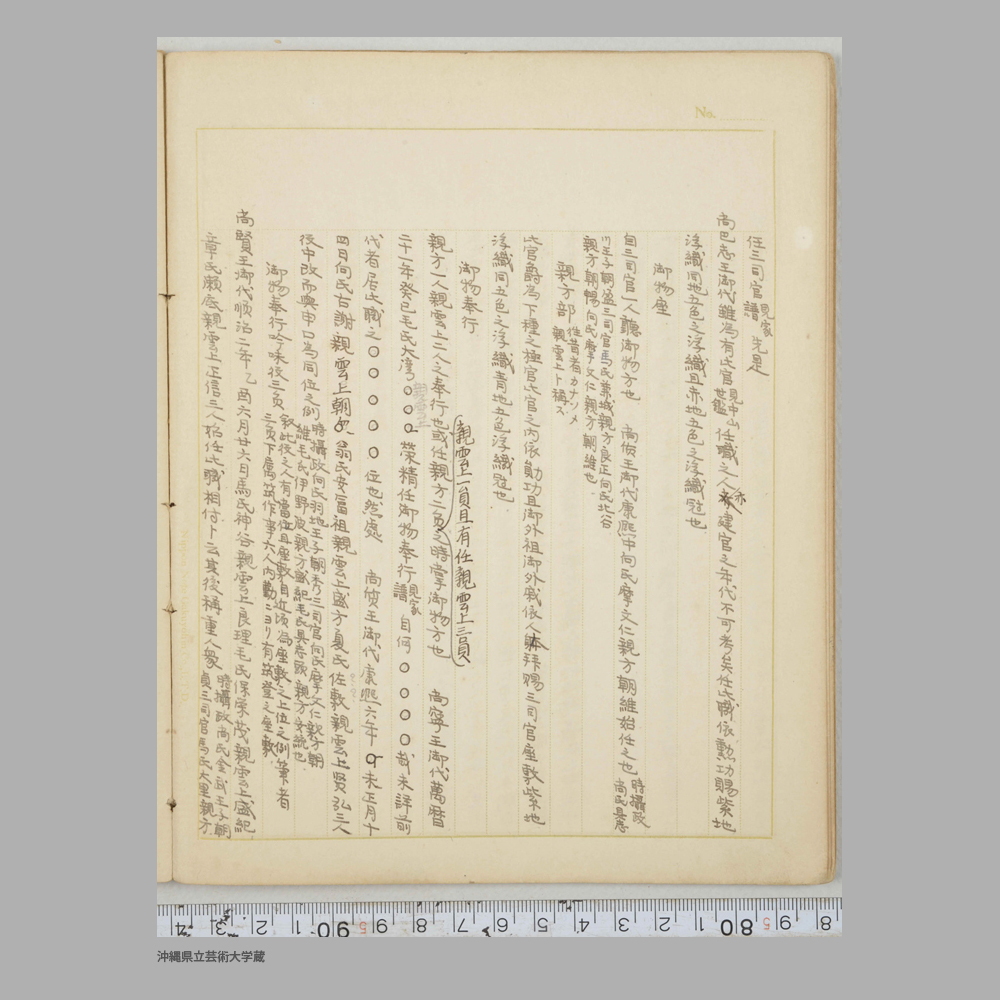 No.
任三司官 見家譜 先是
尚巴志王御代雖為有此官 見中山世鑑 任職之人亦建官之年代不可考矣任此職依勲功賜紫地
浮織冠地五色之浮織且赤地五色之浮織冠也
御物座
自三司官一人 御物方也 尚質王御代康熙中向氏摩文仁親方朝維始任之也 時攝政尚氏具志
川王子朝盈三司官馬氏兼城親方良正向氏北谷
親方朝暢向氏摩文仁親方朝維也
親方部 往昔者カナソメ親雲上ト稱ス
此官爵為下種之極官此官之内依勛功且御外祖御外戚依人 拜賜三司官座敷紫地
浮織冠五色之浮織青地五色浮織冠也
御物奉行
親雲上一員且有任親雲上三員
親方一人親雲上二人之奉行也或任親方二員之時掌御物方也 尚寧王御代萬暦
二十一年癸巳毛氏大湾○○○榮精任御物奉行 見家譜 自何○○○○哉未詳前
代者居此職之○○○○○位也然處 尚質王御代康熙六年丁未正月十
四日向氏古謝親雲上朝 翁氏安富祖親雲上盛方夏氏佐敷親雲上賢弘三人
役中改而與申口為同位之例 時攝政向氏羽地王子朝秀三司官向氏摩文仁親方朝
維毛氏伊野波親方盛紀毛氏具志頭親方安統也
御物奉行吟味役三員 敘此役之人有當位且座敷自近頃為座敷之上位之例筆者
三員下属筑作事六人内勤ニヨリ有筑登之座敷
尚賢王御代順治二年乙酉六月廿六日馬氏神谷親雲上良理毛氏保栄茂親雲上盛紀
章氏瀬底親雲上正信三人始任此職相付ト云其後稱重人衆 時攝政尚氏金武王子朝
貞三司官馬氏大里親方
沖縄県立芸術大学蔵